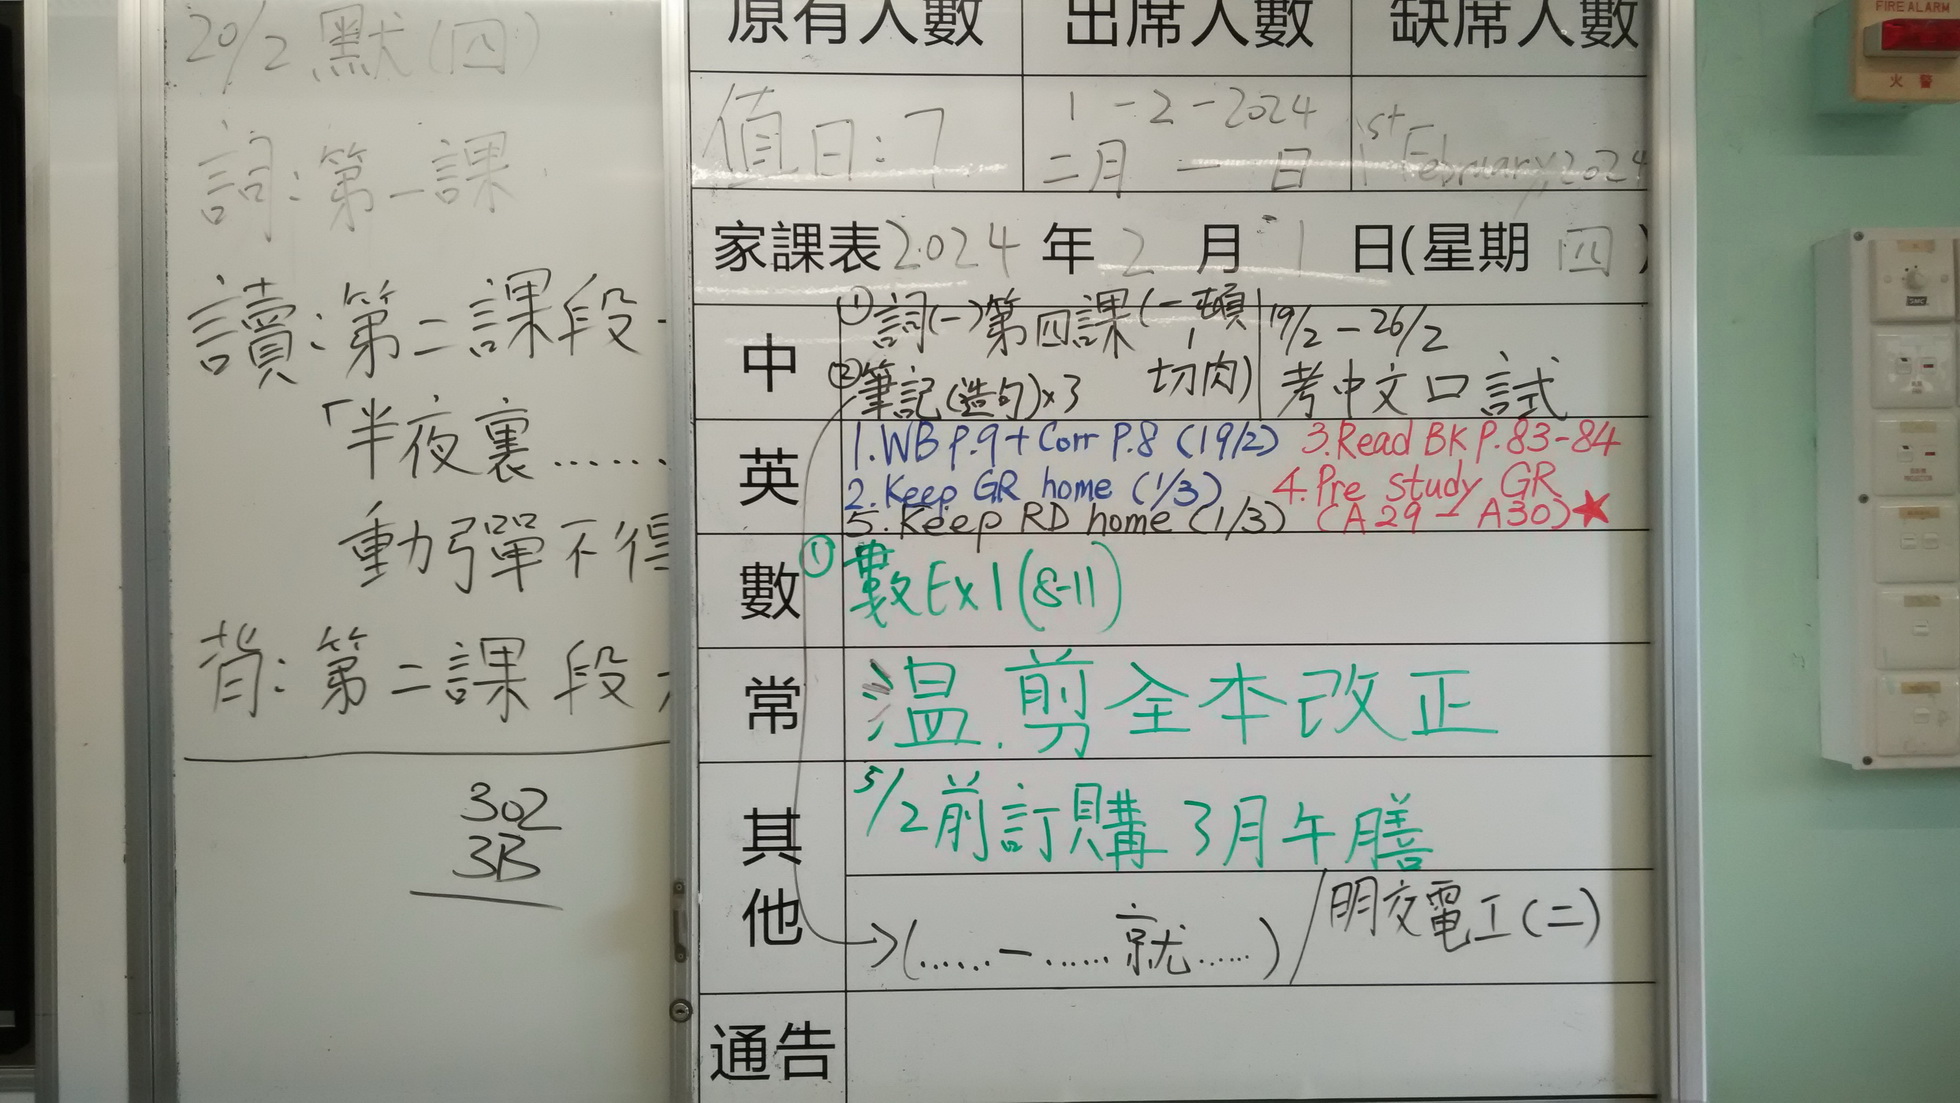 20/2 默(四)
詞:第一課
讀:第二課段
「半夜裏……
動彈不得
背:第二課段
302
3B
原有人數 出席人數 缺席人數
值日:7 1-2-2024 1st February, 2024
二月一日
家課表2024年2月1日(星期四)
中 ①詞(一)第四課(一頓, 19/2-26/2
切肉)
②筆記(造句)x3 考中文口試
英 1.WB P.9+Corr P.8 (19/2) 3.Read BK P.83-84
2.Keep GR home (1/3) 4.Pre study GR
5.Keep RD home (1/3) (A29-A30)★
數 ①數Ex1(8-11)
常 溫.剪全本改正
其他 5/2前訂購3月午膳
→(……一……就……)/明交電工(二)
通告
FIRE ALARM
火警